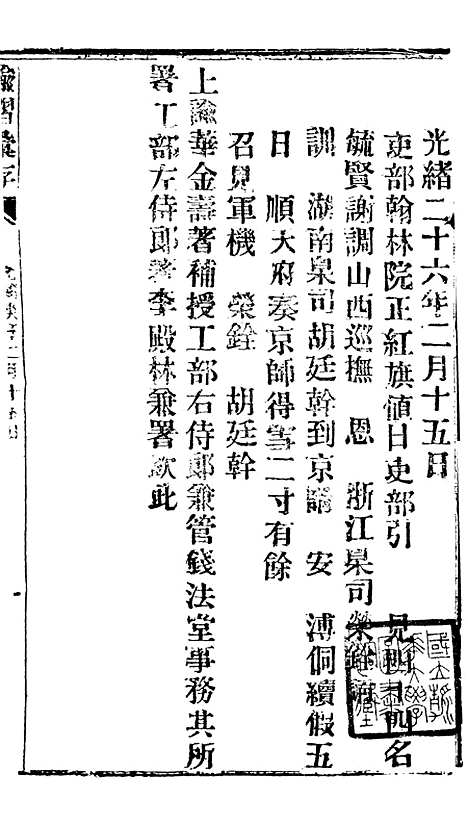 光緒二十六年二月十五日
吏部翰林院正紅旗值日吏部引　見四十四名
毓賢謝調山西巡撫　恩　浙江臬司榮銓請
訓　湖南臬司胡廷幹到京請　安　溥侗續假五
日　順天府奏京師得雪二寸有餘
召見軍機　榮銓　胡廷幹
上諭華金壽著補授工部右侍郎兼管錢法堂事務其所
署工部左侍郎著李殿林兼署欽此
諭摺彙存